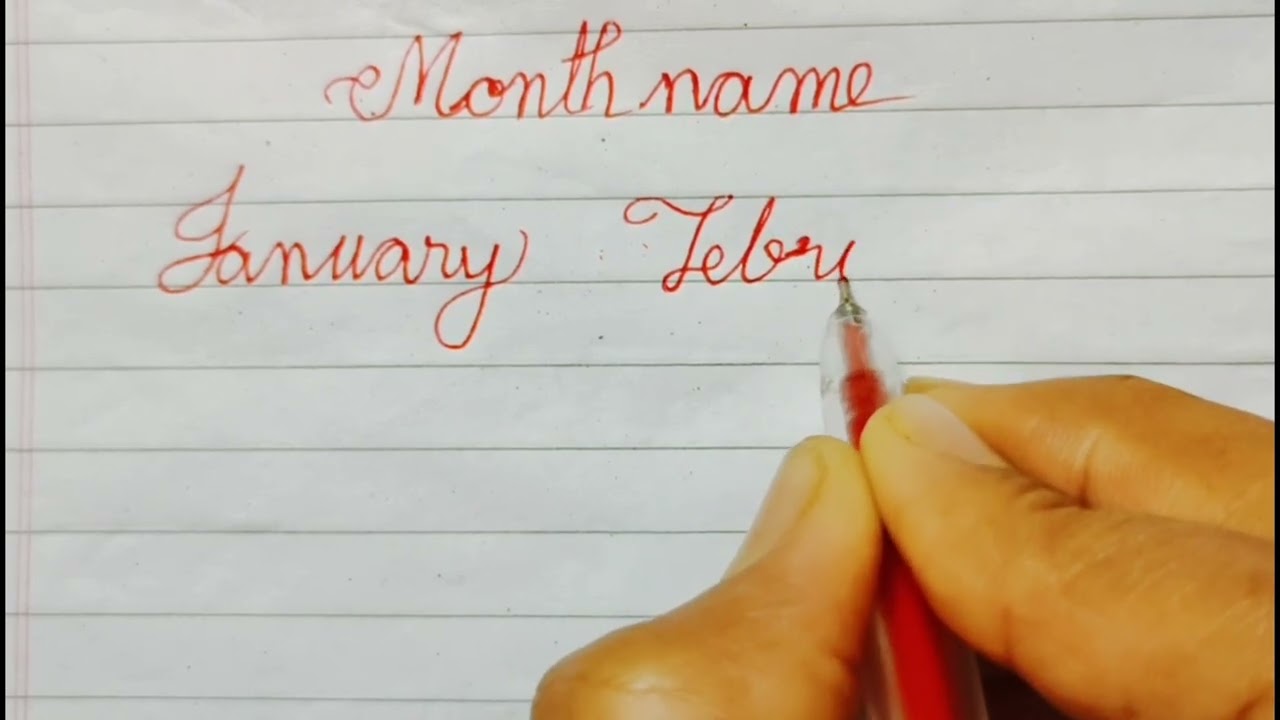 Month name
January Febru